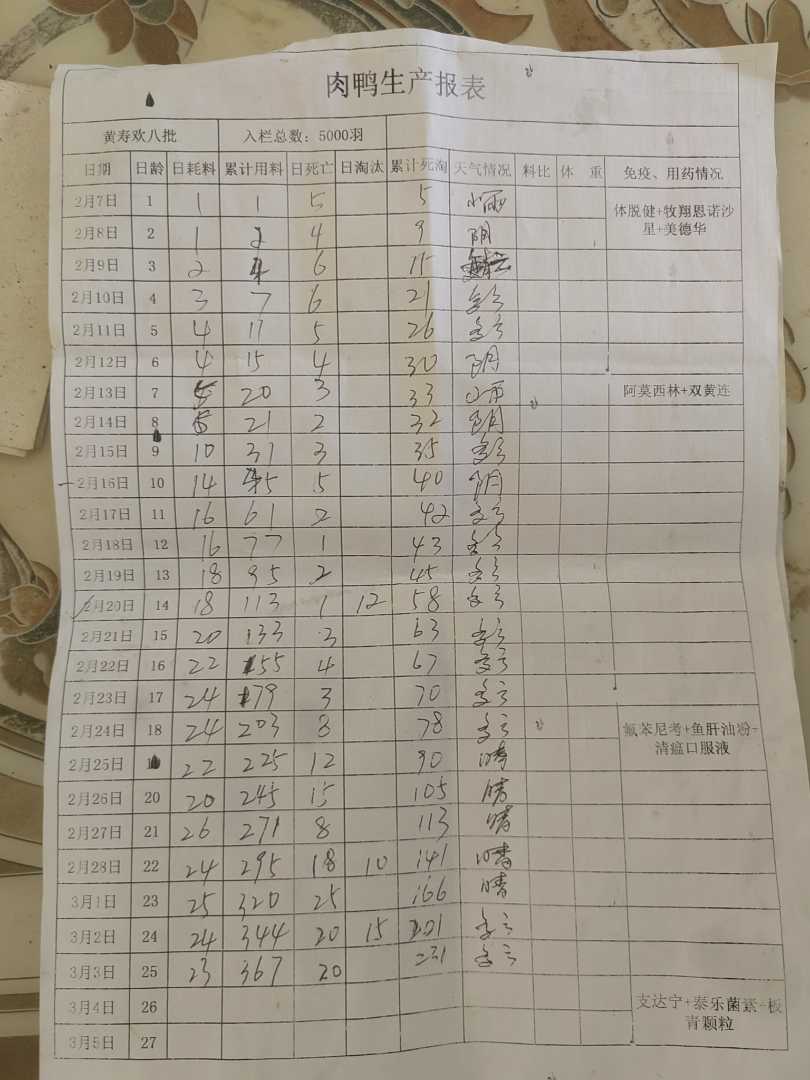 肉鸭生产报表
黄寿欢八批 入栏总数：5000羽
日期 日龄 日耗料 累计用料 日死亡 日淘汰 累计死淘 天气情况 料比 体 重 免疫、用药情况
2月7日 1 1 1 5 5 小雨 体脱健+牧翔恩诺沙
星+美德华
2月8日 2 1 2 4 9 阴
2月9日 3 2 4 6 15
2月10日 4 3 7 6 21 多云
2月11日 5 4 11 5 26 多云
2月12日 6 4 15 4 30 阴
2月13日 7 5 20 3 33 小雨 阿莫西林+双黄连
2月14日 8 21 2 32 阴
2月15日 9 10 31 3 35 多云
2月16日 10 14 45 5 40 阴
2月17日 11 16 61 2 42 多云
2月18日 12 16 77 1 43 多云
2月19日 13 18 95 2 45 多云
2月20日 14 18 113 1 12 58 多云
2月21日 15 20 133 3 63 多云
2月22日 16 22 155 4 67 多云
2月23日 17 24 179 3 70 多云
2月24日 18 24 203 8 78 多云 氟苯尼考+鱼肝油粉+
清瘟口服液
2月25日 22 225 12 90 晴
2月26日 20 20 245 15 105 晴
2月27日 21 26 271 8 113 晴
2月28日 22 24 295 18 10 141 晴
3月1日 23 25 320 25 166 晴
3月2日 24 24 344 20 15 201 多云
3月3日 25 23 367 20 231 多云
3月4日 26 支达宁+泰乐菌素+板
青颗粒
3月5日 27